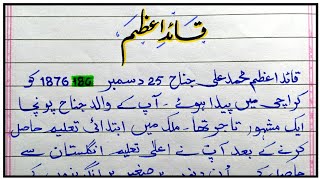 قائدِاعظم
قائداعظم محمد علی جناح 25 دسمبر 186 1876 کو
کراچی میں پیدا ہوئے ۔ آپ کے والد جناح پونجا
ایک مشہور تاجر تھا ۔ ملک میں ابتدائی تعلیم حاصل
کرنے کے بعد آپ نے اعلیٰ تعلیم انگلستان سے
حاصل کی